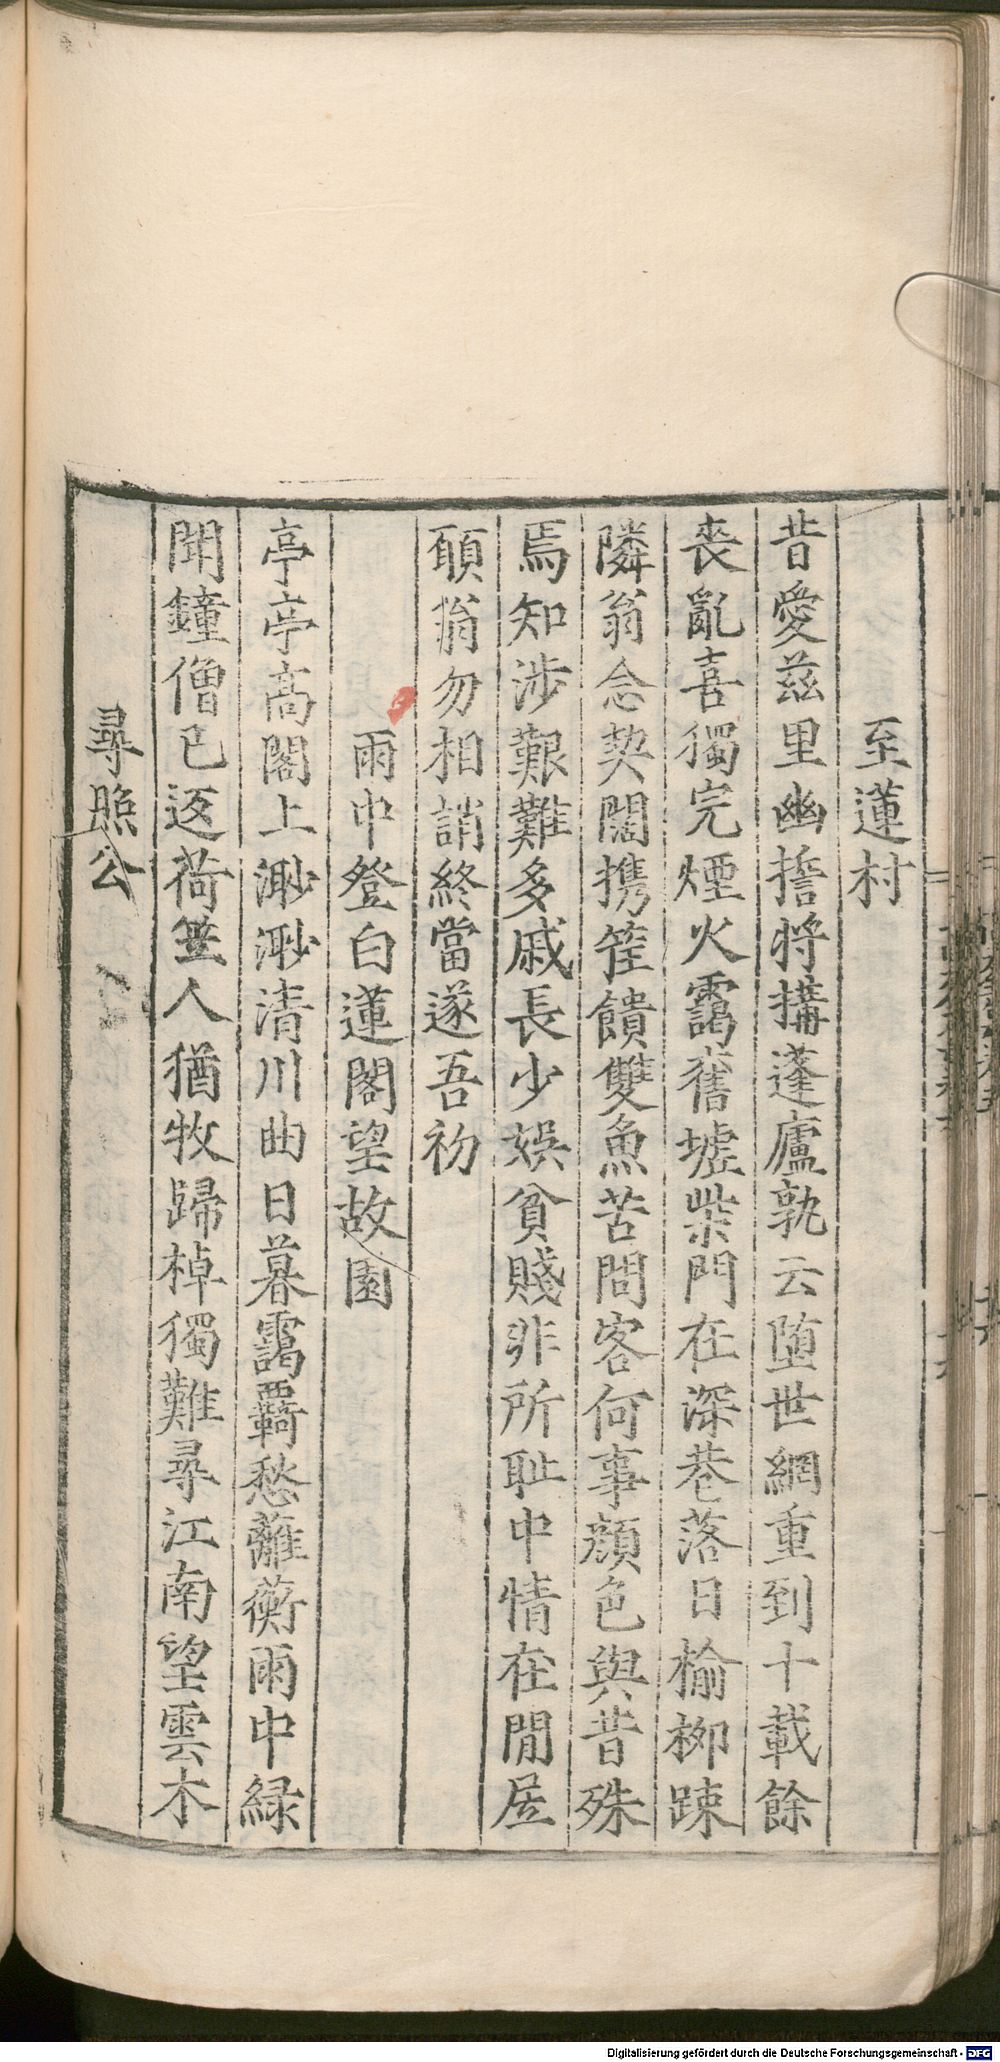 至蓮村
昔愛茲里幽擔將搆蓬廬孰云墮世網重到十載餘
喪亂喜獨完煙火靄舊墟柴門在深巷落日榆柳踈
隣翁念契闊携筐饋雙魚苦問客何事顔色與昔殊
焉知涉艱難多戚長少娛貧賤非所耻中情在閒居
頋翁勿相誚終當遂吾初
雨中登白蓮閣望故園
亭亭高閣上渺渺清川曲日暮靄羇愁蘺蘅雨中緑
聞鐘僧已返荷笠人猶牧歸棹獨難尋江南望雲木
尋照公
Digitalisierung gefördert durch die Deutsche Forschungsgemeinschaft - DFG